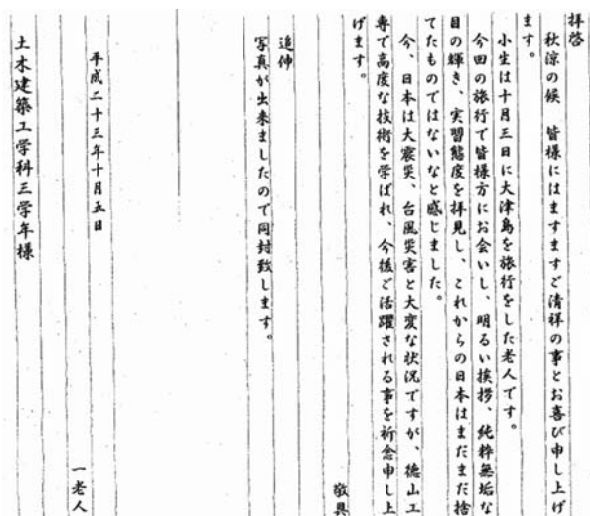 拝啓
秋涼の候　皆様にはますますご清祥の事とお喜び申し上げ
ます。
小生は十月三日に大津島を旅行をした老人です。
今回の旅行で皆様方にお会いし、明るい挨拶、純粋無垢な
目の輝き、実習態度を拝見し、これからの日本はまだまだ捨
てたものではないなと感じました。
今、日本は大震災、台風災害と大変な状況ですが、徳山工
専で高度な技術を学ばれ、今後ご活躍される事を祈念申し上
げます。
敬具
追伸
写真が出来ましたので同封致します。
平成二十三年十月五日
一老人
土木建築工学科三学年様